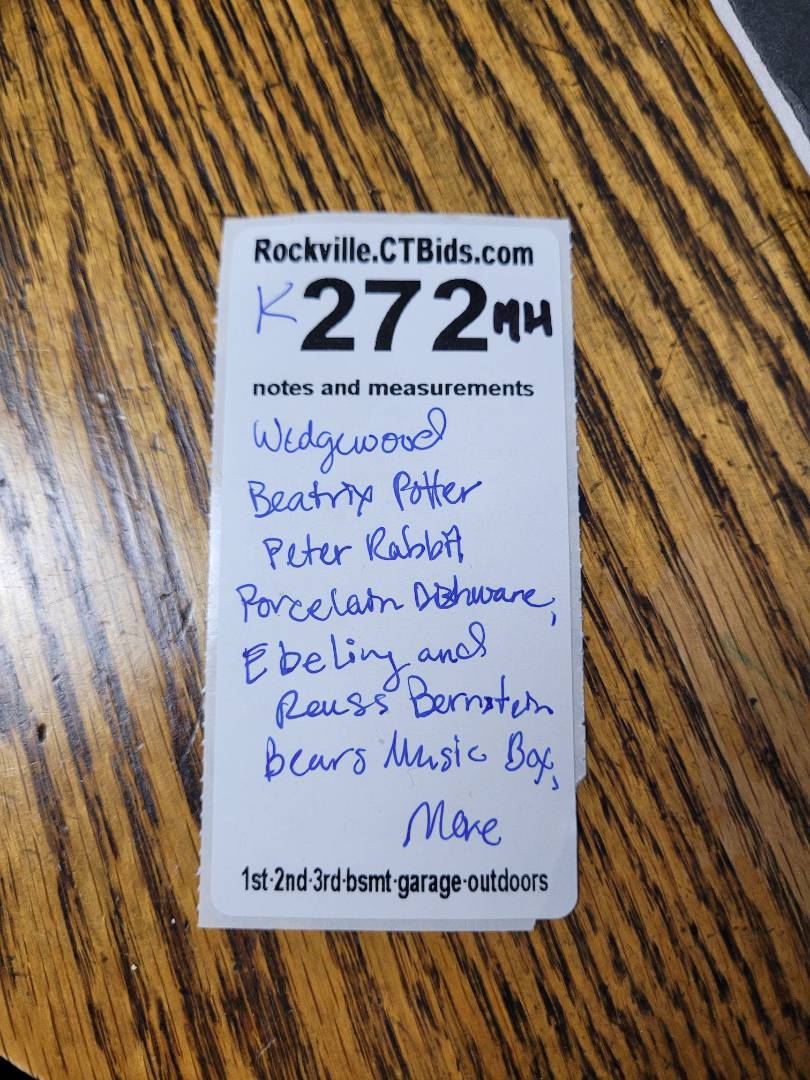 Rockville.CTBids.com
K 272 MH
notes and measurements
Wedgwood
Beatrix Potter
Peter Rabbit
Porcelain Dishware,
Ebeling and
Reuss Bernstein
Bears Music Box,
More
1st·2nd·3rd·bsmt·garage·outdoors